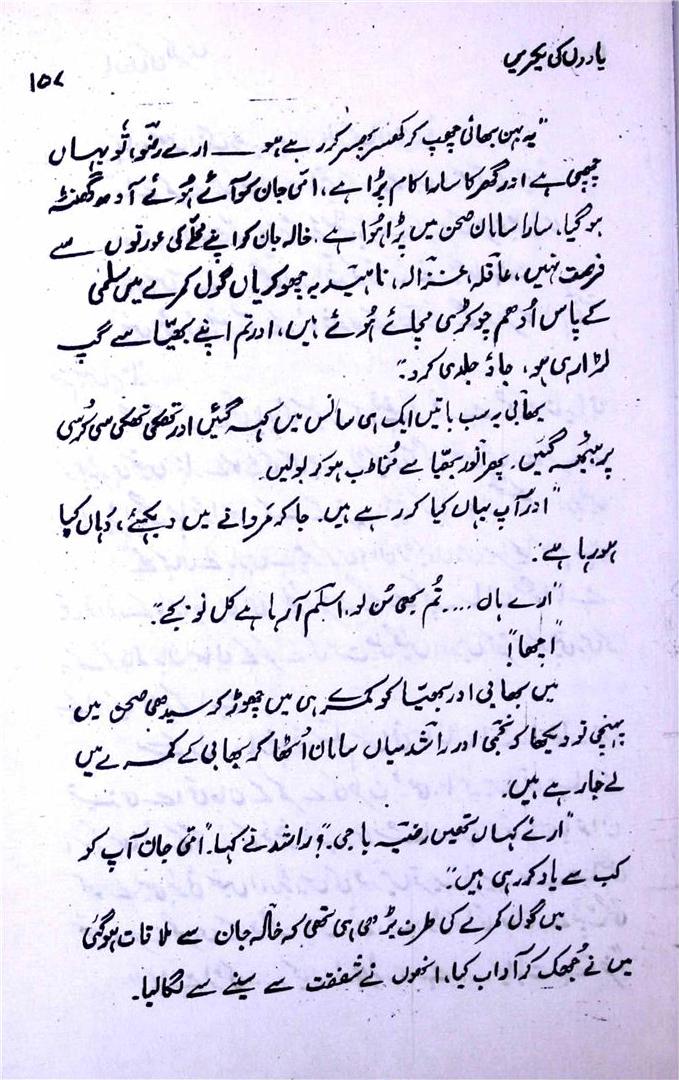 یادوں کی بحریں
۱۵۷
"یہ بہن بھائی چھپ کر کھسر پھسر کر رہے ہو —— ارے رضّو، تُو یہاں
چھپی ہے اور گھر کا سارا کام پڑا ہے، امّی جان کو آئے ہُوئے آدھ گھنٹہ
ہو گیا، سارا سامان صحن میں پڑا ہُوا ہے. خالہ جان کو اپنے محلّے کی عورتوں سے
فرصت نہیں، عاقلہ، غزالہ، ناہید یہ چھوکریاں گول کمرے میں سلمی
کے پاس اُدھم چوکڑی مچائے ہُوئے ہیں، اور تم اپنے بھیّا سے گپ
لڑا رہی ہو، جاؤ جلدی کرو."
بھابی یہ سب باتیں ایک ہی سانس میں کہہ گئیں اور تھکی تھکی سی کُرسی
پر بیٹھ گئیں. پھر انور بھیّا سے مُخاطب ہو کر بولیں.
"اور آپ یہاں کیا کر رہے ہیں. جا کہ مَردانے میں دیکھئے، وُہاں کیا
ہو رہا ہے."
"ارے ہاں .... تُم بھی سُن لو، اسلم آ رہا ہے کل نو بجے."
"اچھا!"
میں بھابی اور بھیّا کو کمرے ہی میں چھوڑ کر سیدھی صحن میں
پہنچی تو دیکھا کہ نجمی اور راشد میاں سامان اُٹھا کر بھابی کے کمرے میں
لے جا رہے ہیں.
"ارے کہاں تھیں رضیہ باجی.؟" راشد نے کہا. "امّی جان آپ کو
کب سے یاد کر رہی ہیں".
میں گول کمرے کی طرف بڑھی ہی تھی کہ خالہ جان سے ملاقات ہو گئی
میں نے جُھک کر آداب کیا، انھوں نے شفقت سے سینے سے لگا لیا.